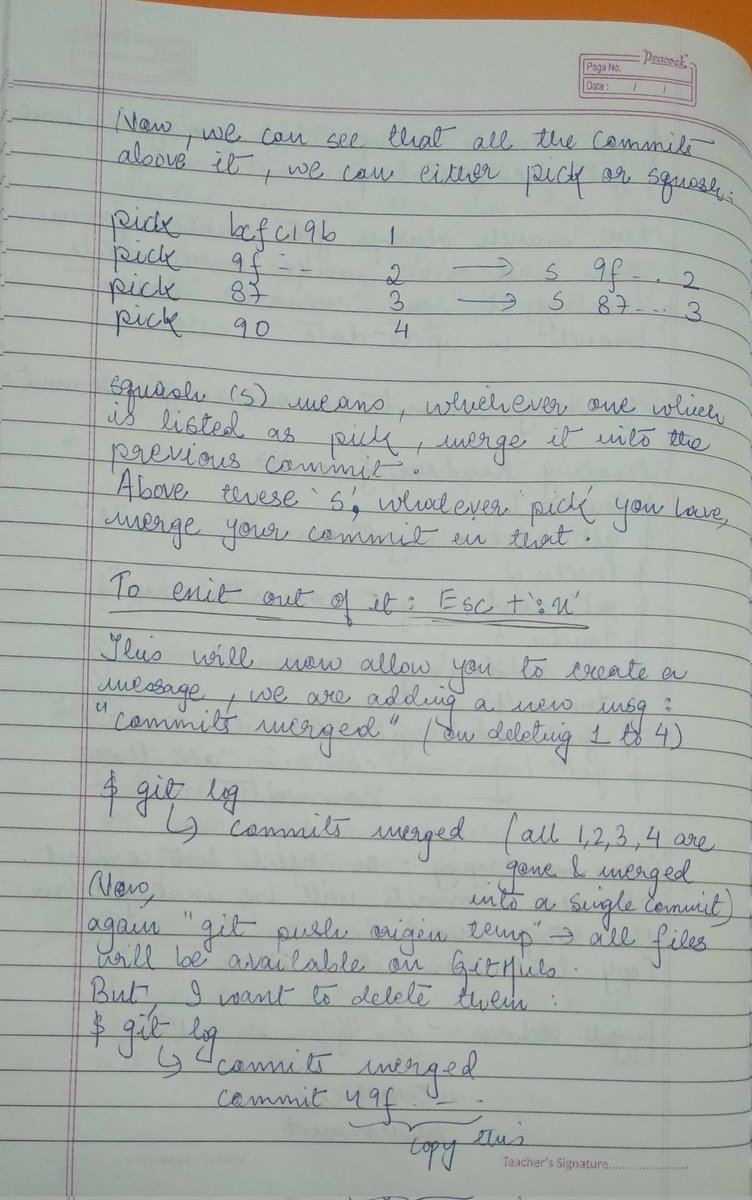 Peacock
Page No.
Date : / /
Now, we can see that all the commits
above it, we can either pick or squash:
pick bcfc19b 1
pick 9f --- 2 → s 9f... 2
pick 87 3 → s 87... 3
pick 90 4
squash (s) means, whichever one which
is listed as pick, merge it into the
previous commit.
Above these 's', whatever 'pick' you have,
merge your commit in that.
To exit out of it : Esc + ':x'
This will now allow you to create a
message, we are adding a new msg :
"commits merged" (on deleting 1 to 4)
$ git log
↳ commits merged (all 1,2,3,4 are
gone & merged
into a single commit)
Now,
again "git push origin temp" → all files
will be available on GitHub.
But, I want to delete them :
$ git log
↳ commits merged
commit 49f - - -
copy this
Teacher's Signature....................